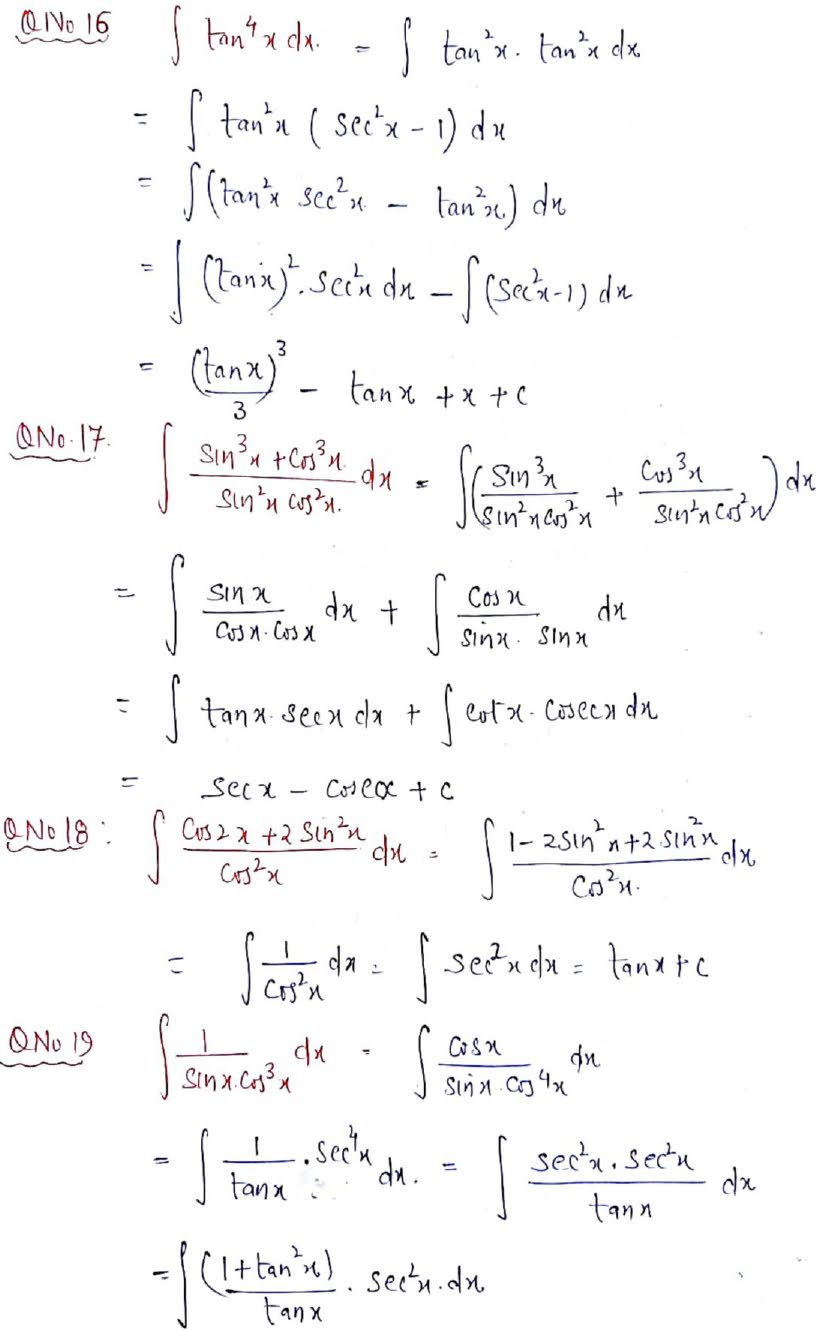 Q No 16 ∫ tan⁴x dx. = ∫ tan²x . tan²x dx
= ∫ tan²x ( sec²x - 1) dx
= ∫(tan²x sec²x - tan²x) dx
= ∫ (tanx)² . sec²x dx - ∫(sec²x-1) dx
= (tanx)³/3 - tanx + x + c
Q No. 17. ∫ (sin³x + cos³x)/(sin²x cos²x) dx = ∫( sin³x/(sin²x cos²x) + cos³x/(sin²x cos²x) ) dx
= ∫ sin x/(cos x . cos x) dx + ∫ cos x/(sin x . sin x) dx
= ∫ tanx . secx dx + ∫ cotx . cosecx dx
= secx - cosecx + c
Q No 18 : ∫ (cos2x + 2 sin²x)/cos²x dx = ∫ (1 - 2sin²x + 2 sin²x)/cos²x. dx
= ∫ 1/cos²x dx = ∫ sec²x dx = tanx + c
Q No 19 ∫ 1/(sinx . cos³x) dx = ∫ cosx/(sinx . cos⁴x) dx
= ∫ 1/tanx . sec⁴x dx. = ∫ (sec²x . sec²x)/tanx dx
= ∫ (1 + tan²x)/tanx . sec²x . dx